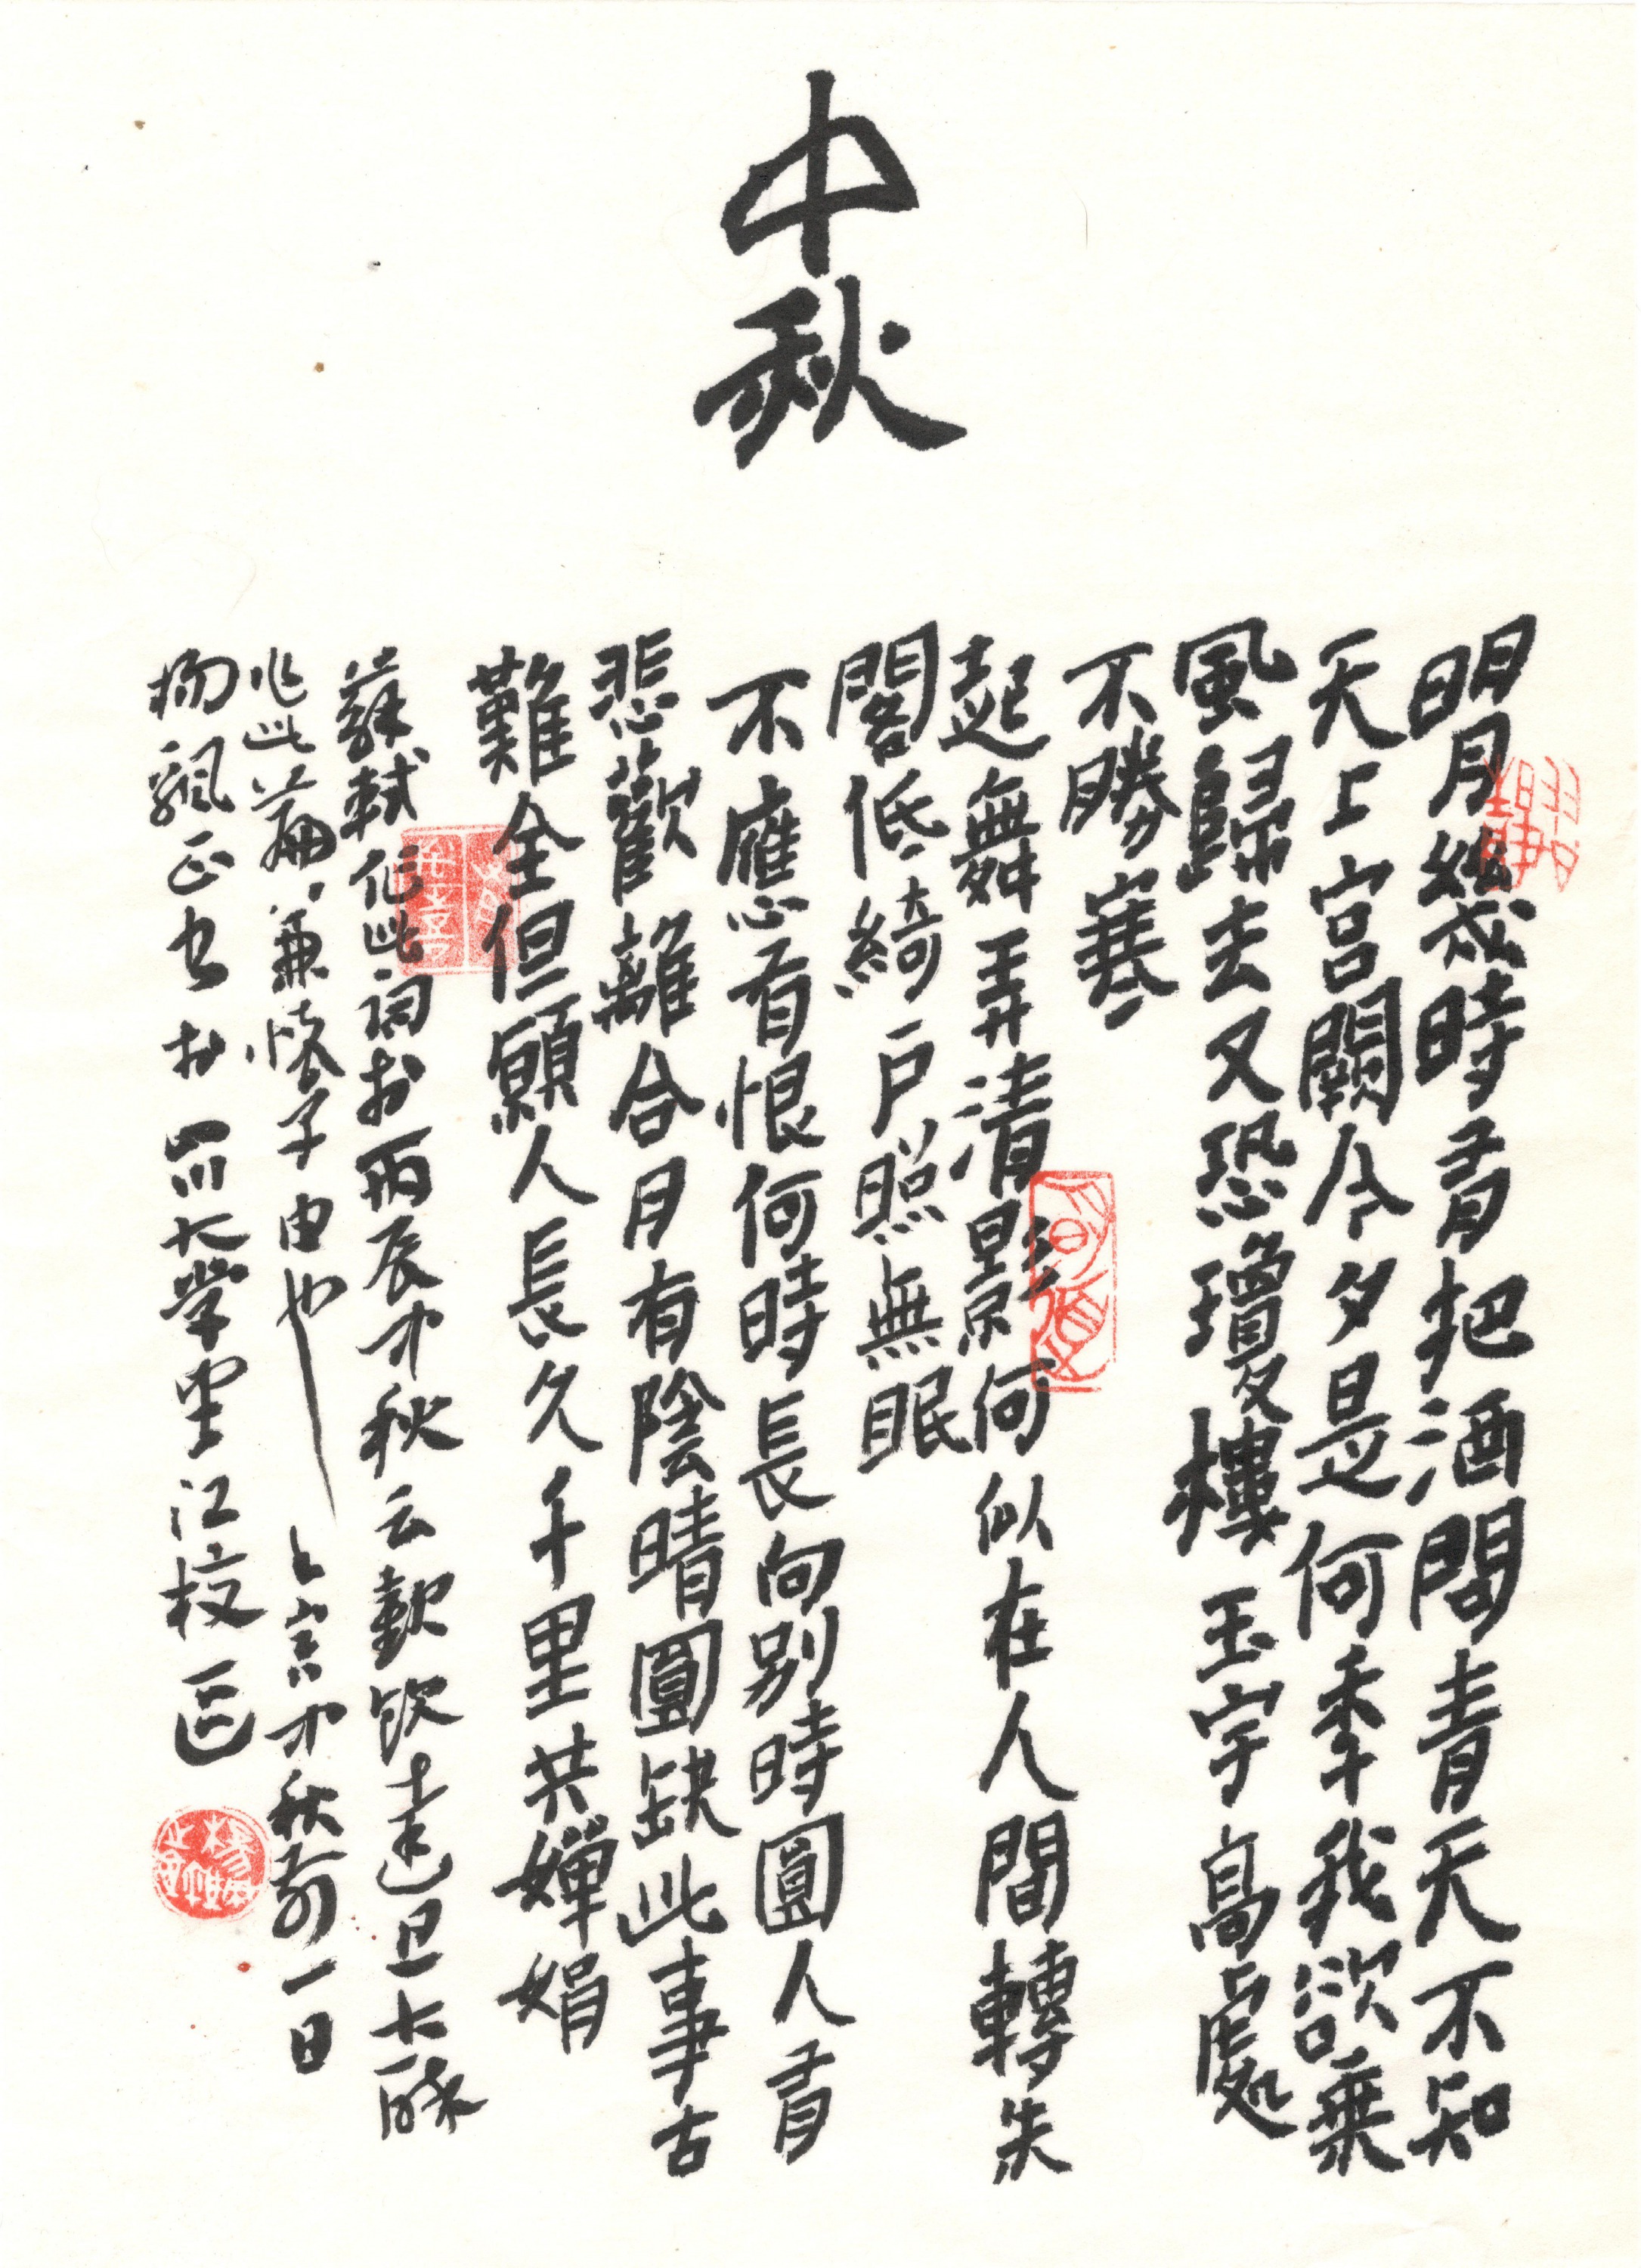 中秋
明月幾時有把酒問青天不知
天上宫闕今夕是何秊我欲乗
風歸去又恐瓊樓玉宇高處
不勝寒
起舞弄清影何似在人間轉朱
閣低綺户照無眠
不應有恨何時長向别時圓人有
悲歡離合月有陰晴圓缺此事古
難全但願人長久千里共嬋娟
蘇軾作此詞於丙辰中秋云歡饮達旦大醉
作此篇兼懷子由也 中秋前一日
杨飙正书於四川大学望江校区